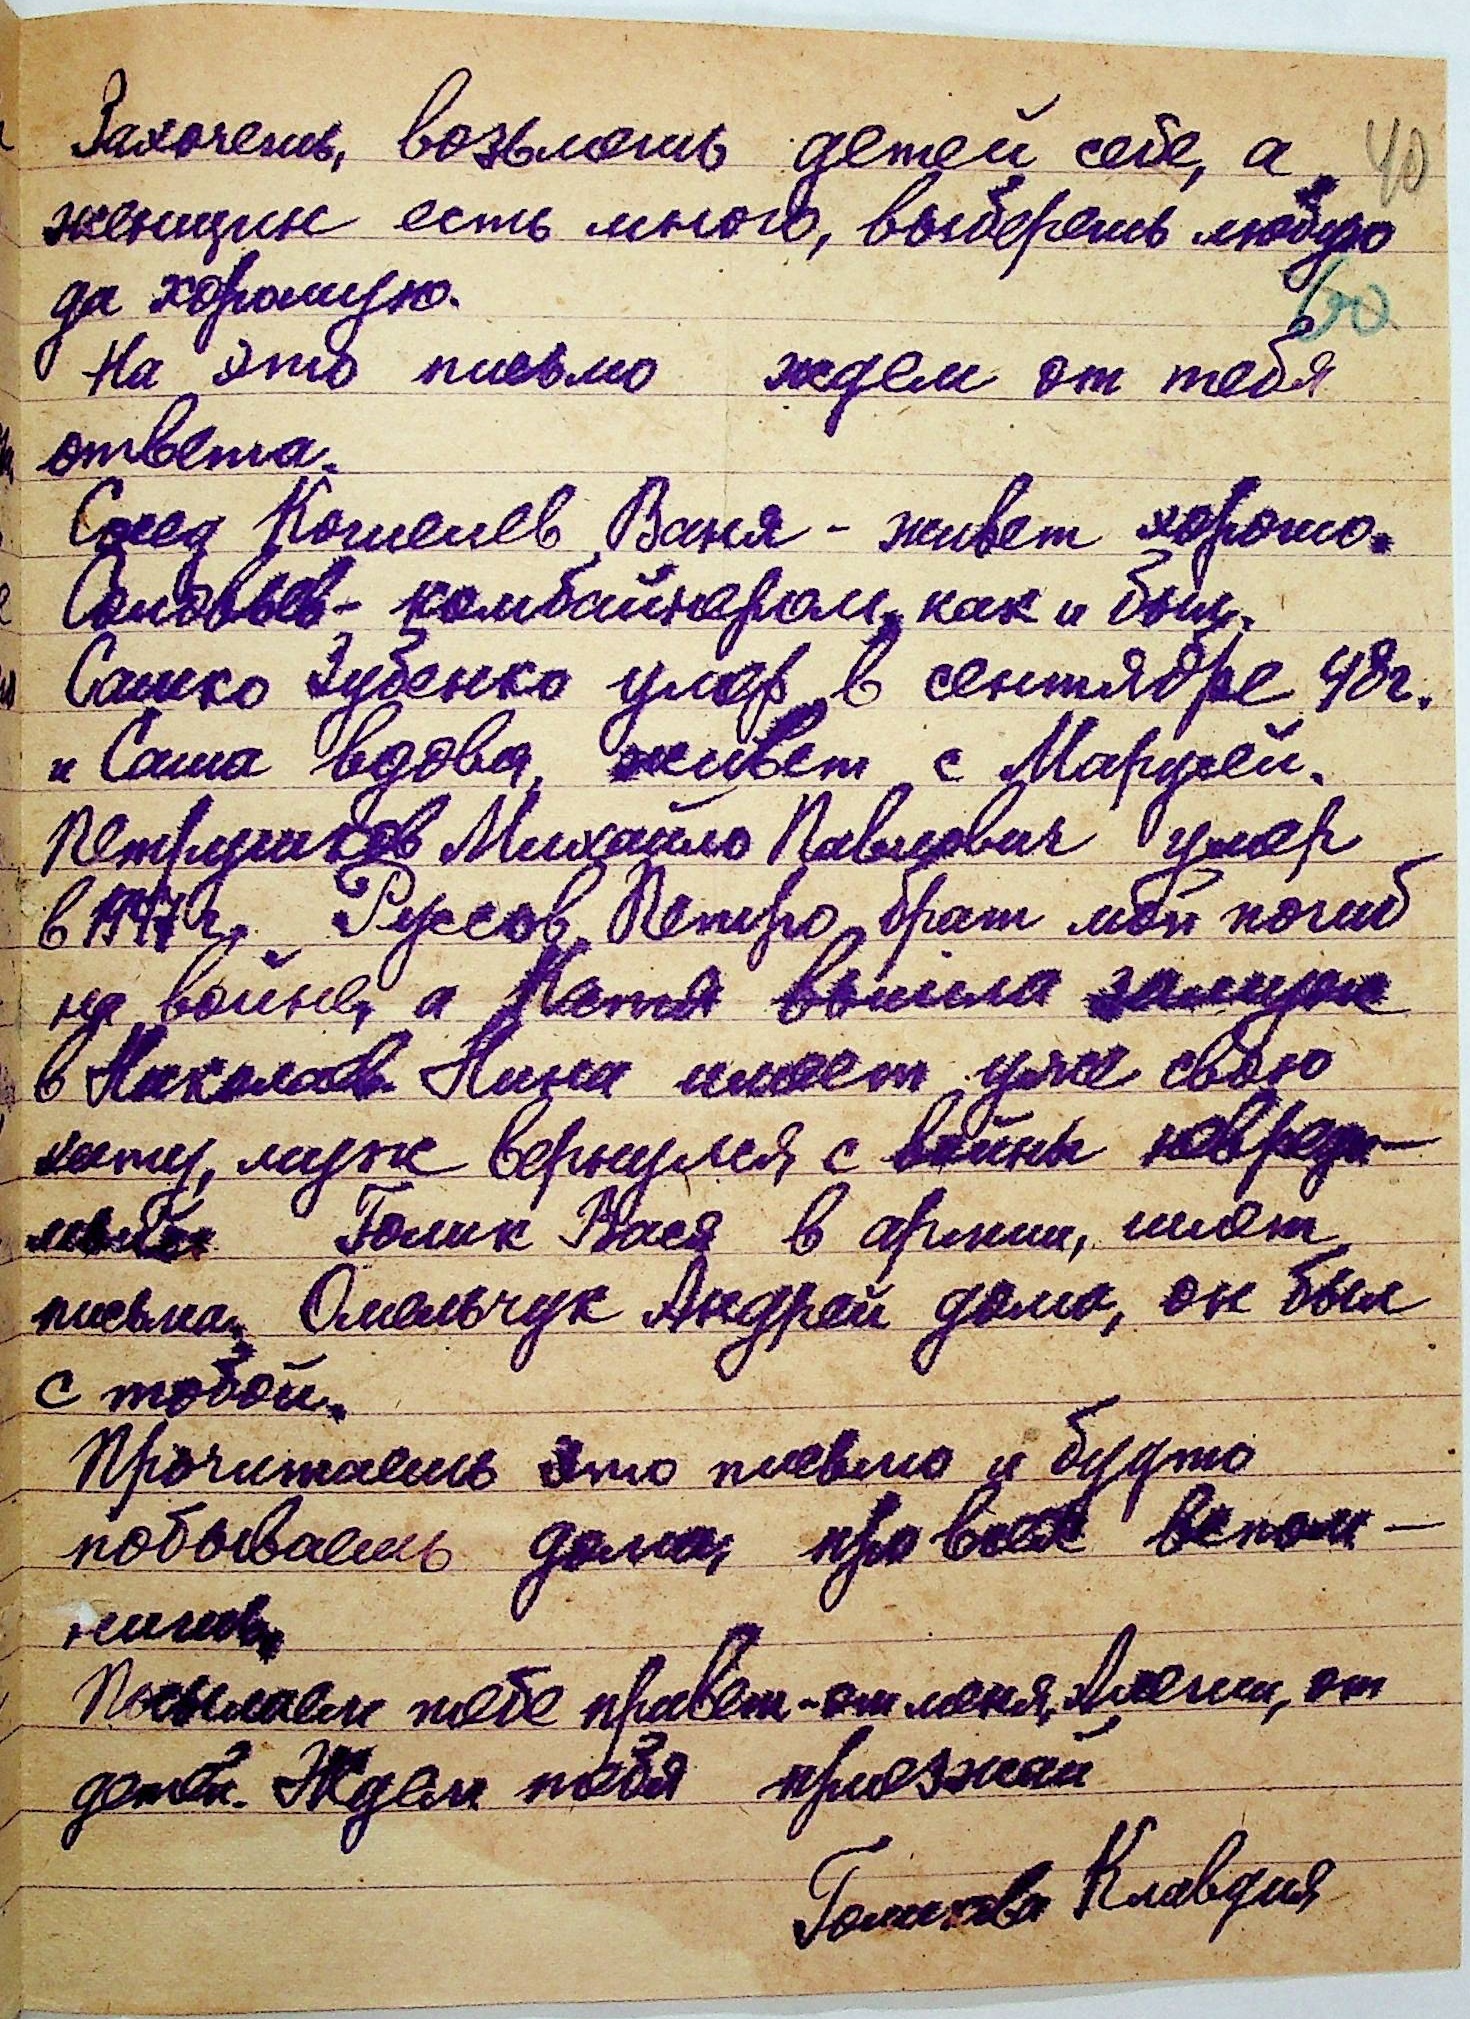 Захочешь, возьмешь детей себе, а 40
женщин есть много, выберешь любую
да хорошую. 60
На это письмо ждем от тебя
ответа.
Сосед Кошелев Ваня - живет хорошо.
Соловьев - комбайнером, как и был.
Сашко Зубенко умер в сентябре 48г.
и Саша вдова, живет с Марусей.
Петрушков Михайло Павлович умер
в 1947г. Руссов Петро брат мой погиб
на войне, а Катя вышла замуж
в Николаев. Нина имеет уже свою
хату, муж вернулся с войны невреди-
мый. Голик Вася в армии, шлет
письма. Омельчук Андрей дома, он был
с тобой.
Прочитаешь это письмо и будто
побываешь дома, про всех вспом-
нишь.
Посылаем тебе привет - от меня, от
детей. Ждем тебя приезжай
Клавдия